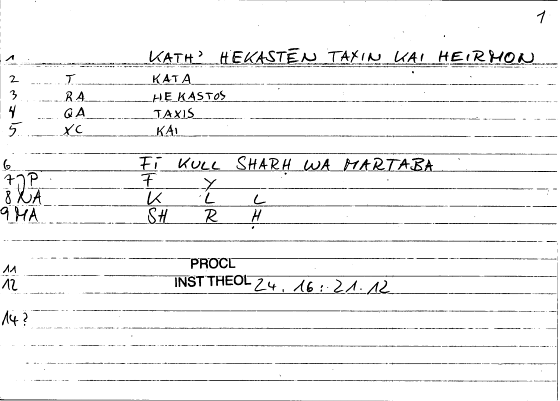 1
1 KATH' HEKASTĒN TAXIN KAI HEIRMON
2 T KATA
3 RA HEKASTOS
4 QA TAXIS
5 XC KAI
6 FĪ KULL SHARḤ WA MARTABA
7 P F Y
8 NA K L L
9 MA SH R Ḥ
11 PROCL
12 INST THEOL 24. 16: 21.12
14?